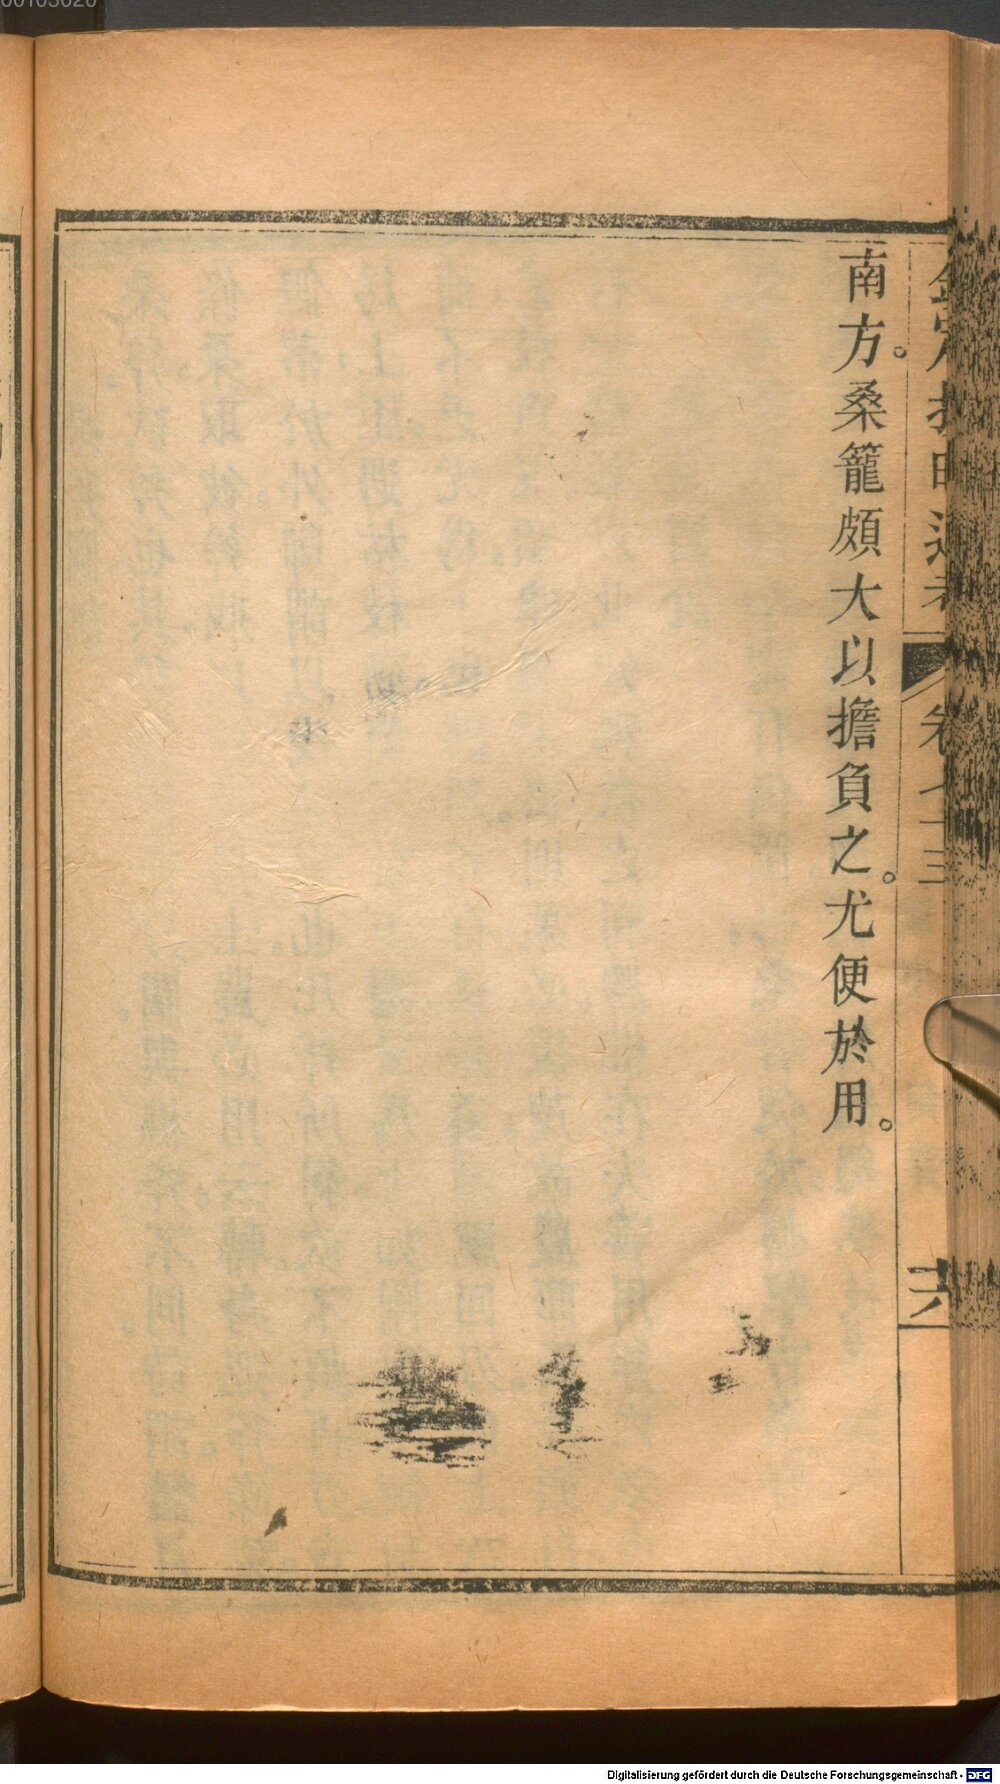 欽定授時通考
卷七十三
六
南方。桑籠頗大以擔負之。尤便於用。
00103020
Digitalisierung gefördert durch die Deutsche Forschungsgemeinschaft - DFG